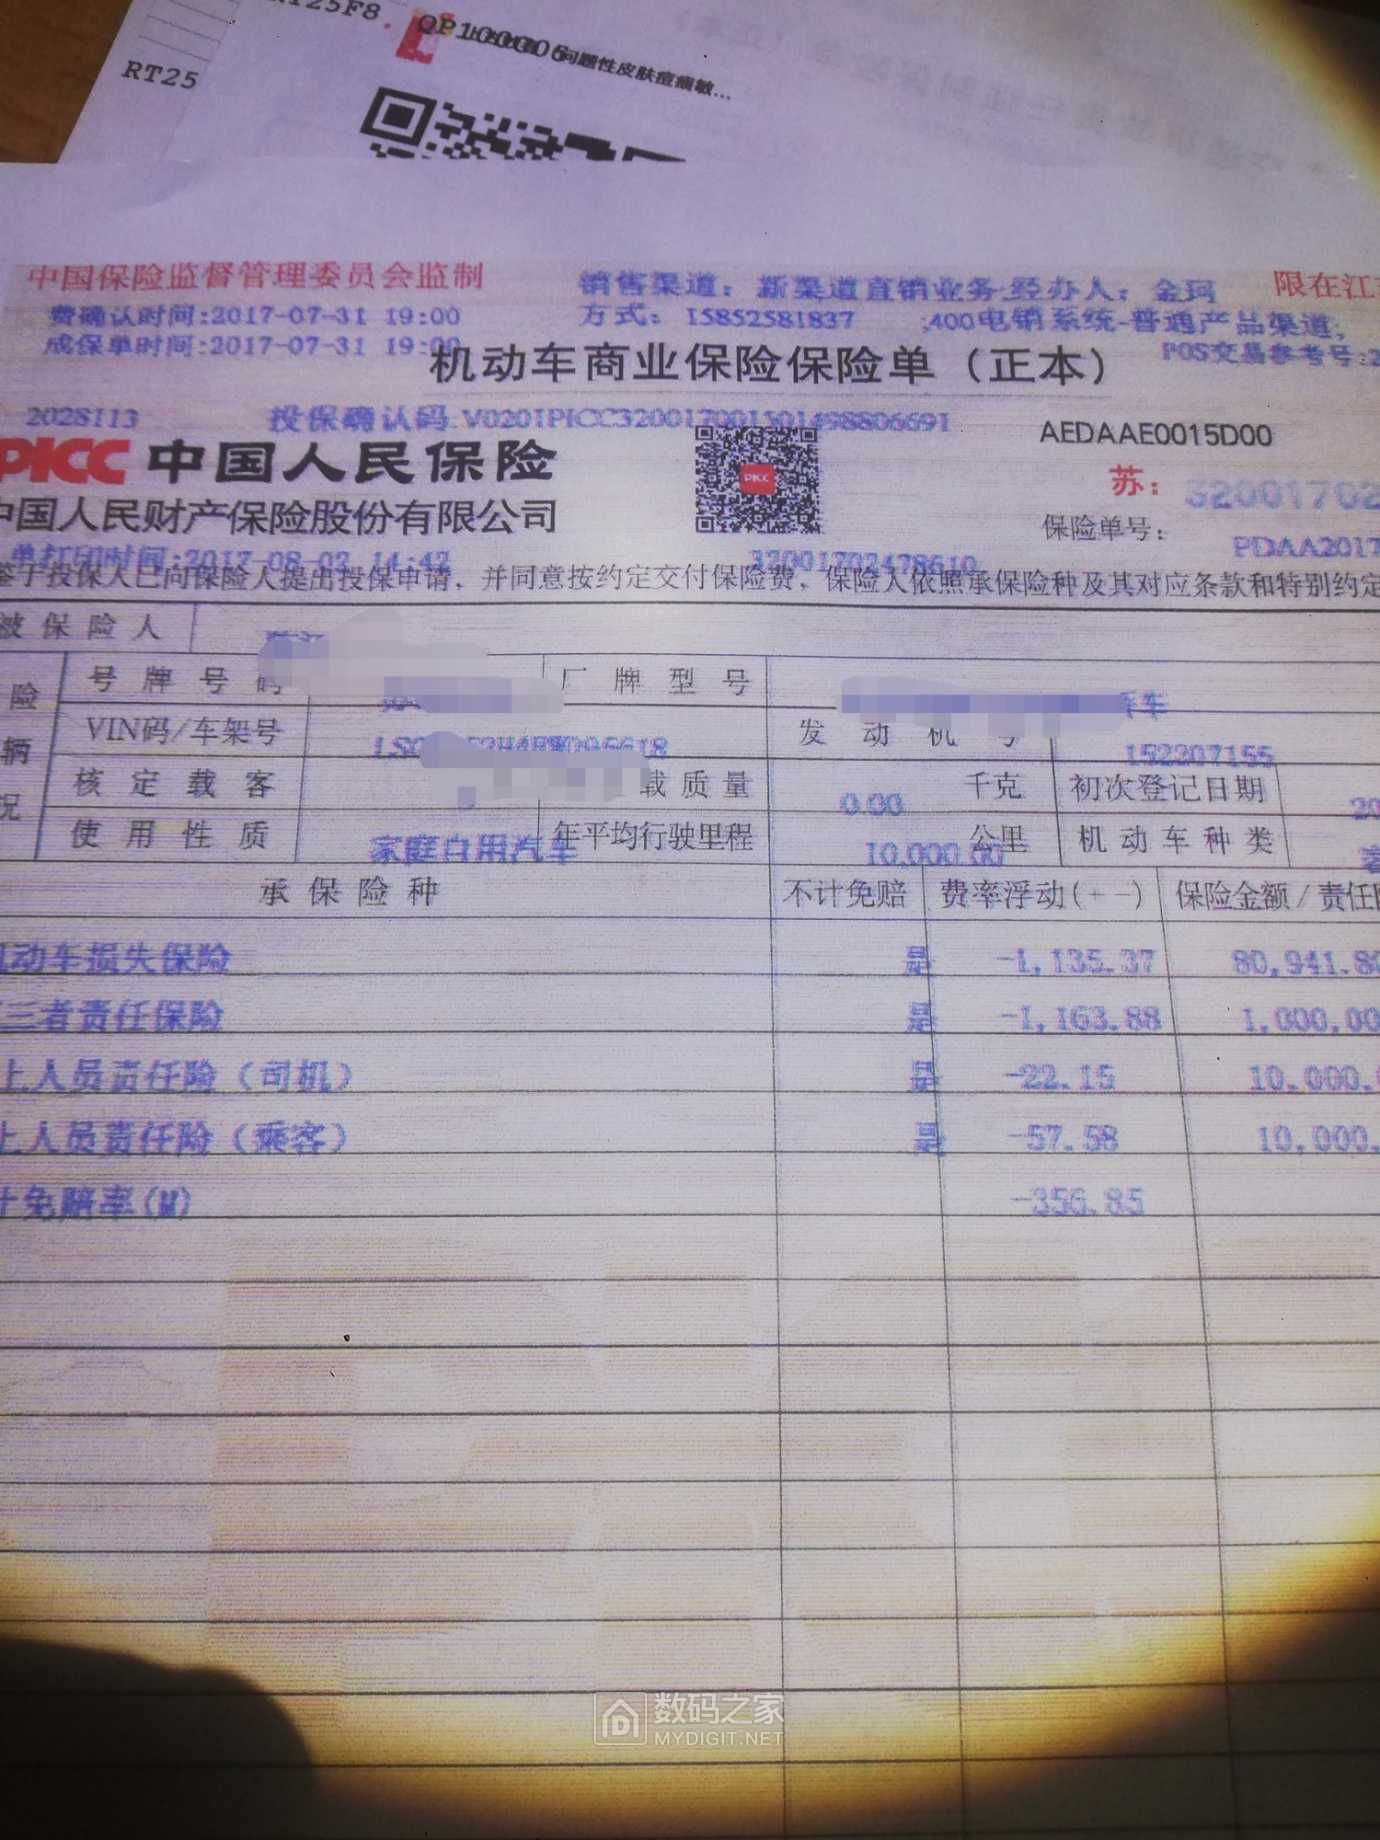 RT25F8
QP1000006
问题性皮肤痘痼敏...
RT25
中国保险监督管理委员会监制
销售渠道：新渠道直销业务 经办人：金珂
限在江
费确认时间:2017-07-31 19:00
方式：15852581837 ;400电销系统-普通产品渠道;
成保单时间:2017-07-31 19:00
POS交易参考号:2
机动车商业保险保险单（正本）
2028113
投保确认码 V0201PICC320017001501498806691
AEDAAE0015D00
PICC 中国人民保险
PICC
苏：
32001702
中国人民财产保险股份有限公司
保险单号：
PDAA2017
单打印时间:2017-08-02 14:42
32001702478610
鉴于投保人已向保险人提出投保申请，并同意按约定交付保险费，保险人依照承保险种及其对应条款和特别约定
被保险人
险
辆
况
号牌号码
厂牌型号
轿车
VIN码/车架号
发动机号
152207155
核定载客
载质量
0.00
千克
初次登记日期
20
使用性质
家庭自用汽车
年平均行驶里程
10,000.00
公里
机动车种类
客
承保险种
不计免赔
费率浮动(+－)
保险金额/责任
机动车损失保险 是 -1,135.37 80,941.80
三者责任保险 是 -1,163.88 1,000,00
上人员责任险（司机） 是 -22.15 10,000.
上人员责任险（乘客） 是 -57.58 10,000.
计免赔率(M) -356.85
数码之家
MYDIGIT.NET